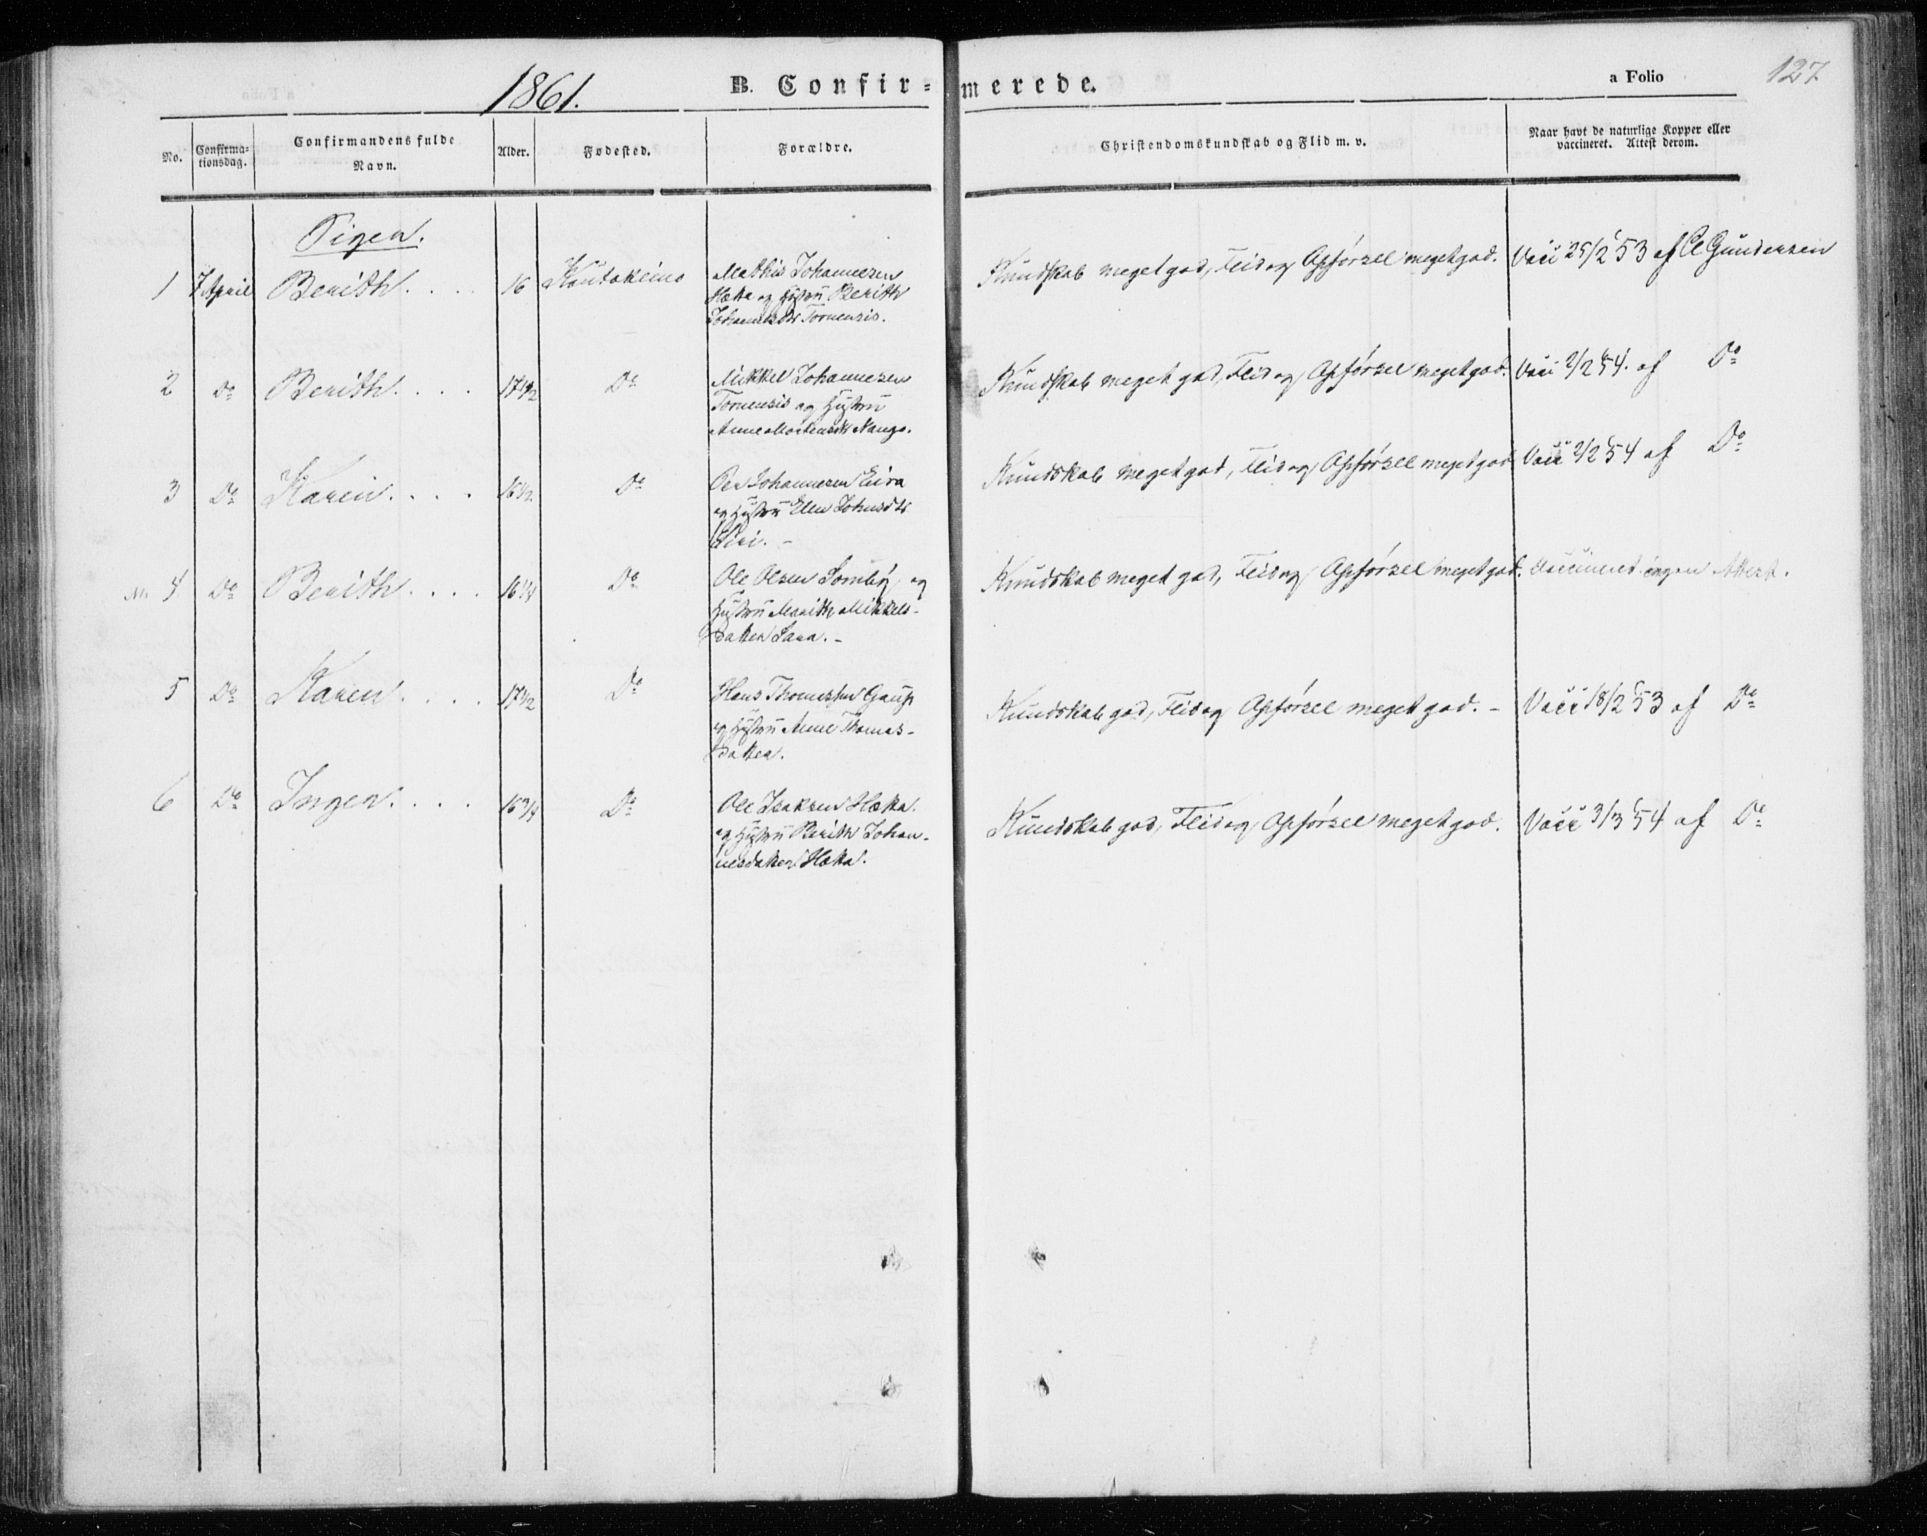 1861.
B. Confirmerede.
a Folio
127
No.
Confirma-
tionsdag.
Confirmandens fulde
Navn.
Alder.
Fødested.
Forældre.
Christendomskundskab og Flid m. v.
Naar havt de naturlige Kopper eller
vaccineret. Attest derom.
Piger.
1 7 April Berith. . . . 16 Koutokeino
Mathis Johannesen
Hætta og Hustru Berith
Johannesdtr Tornensis.
Kundskab meget god, Flid og Opførsel meget god. Vacc 25/2 53 af C Gundersen
2 Do Berith. . . . 17 1/2 Do
Mikkel Johannesen
Tornensis og Hustru
Anne Mortensdtr Nango.
Kundskab meget god, Flid og Opførsel meget god. Vacc 2/2 54. af Do
3 Do Karen. . . . 16 1/2 Do
Per Johannesen Eira
og Hustru Ellen Johnsdtr
Siri. -
Kundskab meget god, Flid og Opførsel meget god. Vacc 2/2 54 af Do
4 Do Berith. . . . 16 1/4 Do
Ole Olsen Somby, og
Hustru Marith Mikkels-
datter Sara. -
Kundskab meget god, Flid og Opførsel meget god. Vaccineret ingen Attest.
5 Do Karen. . . . 17 1/2 Do
Hans Thomessen Gaup
og Hustru Anne Thomas-
datter.
Kundskab god, Flid og Opførsel meget god. - Vacc 18/2 53 af Do
6 Do Inger. . . . 16 3/4 Do
Ole Isaksen Hætta.
og Hustru Berith Johan-
nesdatter Hætta.
Kundskab god, Flid og Opførsel meget god. Vacc 3/3 54 af Do